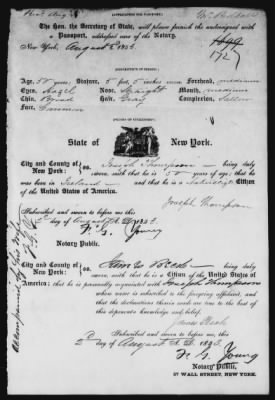 The Hon. the Secretary of State, will please furnish the undersigned with
a Passport, addressed care of the Notary.
New York, August 2 1853
1699
1727
Age, 50 years, Stature, 5 feet, 5 inches Forehead, medium
Eyes, Hazel Nose, Straight Mouth, medium
Chin, Broad Hair, Gray Complexion, Sallow
Face, Common
State of New York.
City and County of
New York: ss. Joseph Thompson being duly
sworn, saith that he is 50 years of age; that he
was born in Ireland and is a Naturalized Citizen
of the United States of America.
Joseph Thompson
Subscribed and sworn to before me this
2d day of August A.D. 1853.
F. G. Young
Notary Public.
accompanied by his Wife
City and County of
New York: ss. James Beck being duly
sworn, saith that he is a Citizen of the United States of
America; that he is personally acquainted with Joseph Thompson
whose name is subscribed to the foregoing affidavit, and
that the declarations therein made are true to the best of
this deponent's knowledge and belief.
James Beck
Subscribed and sworn to before me this
2d day of August A.D. 1853.
F. G. Young
Notary Public.
57 WALL STREET, NEW YORK.